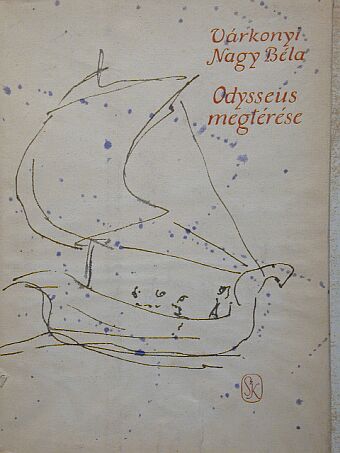 Várkonyi
Nagy Béla
Odysseus
megtérése
SK